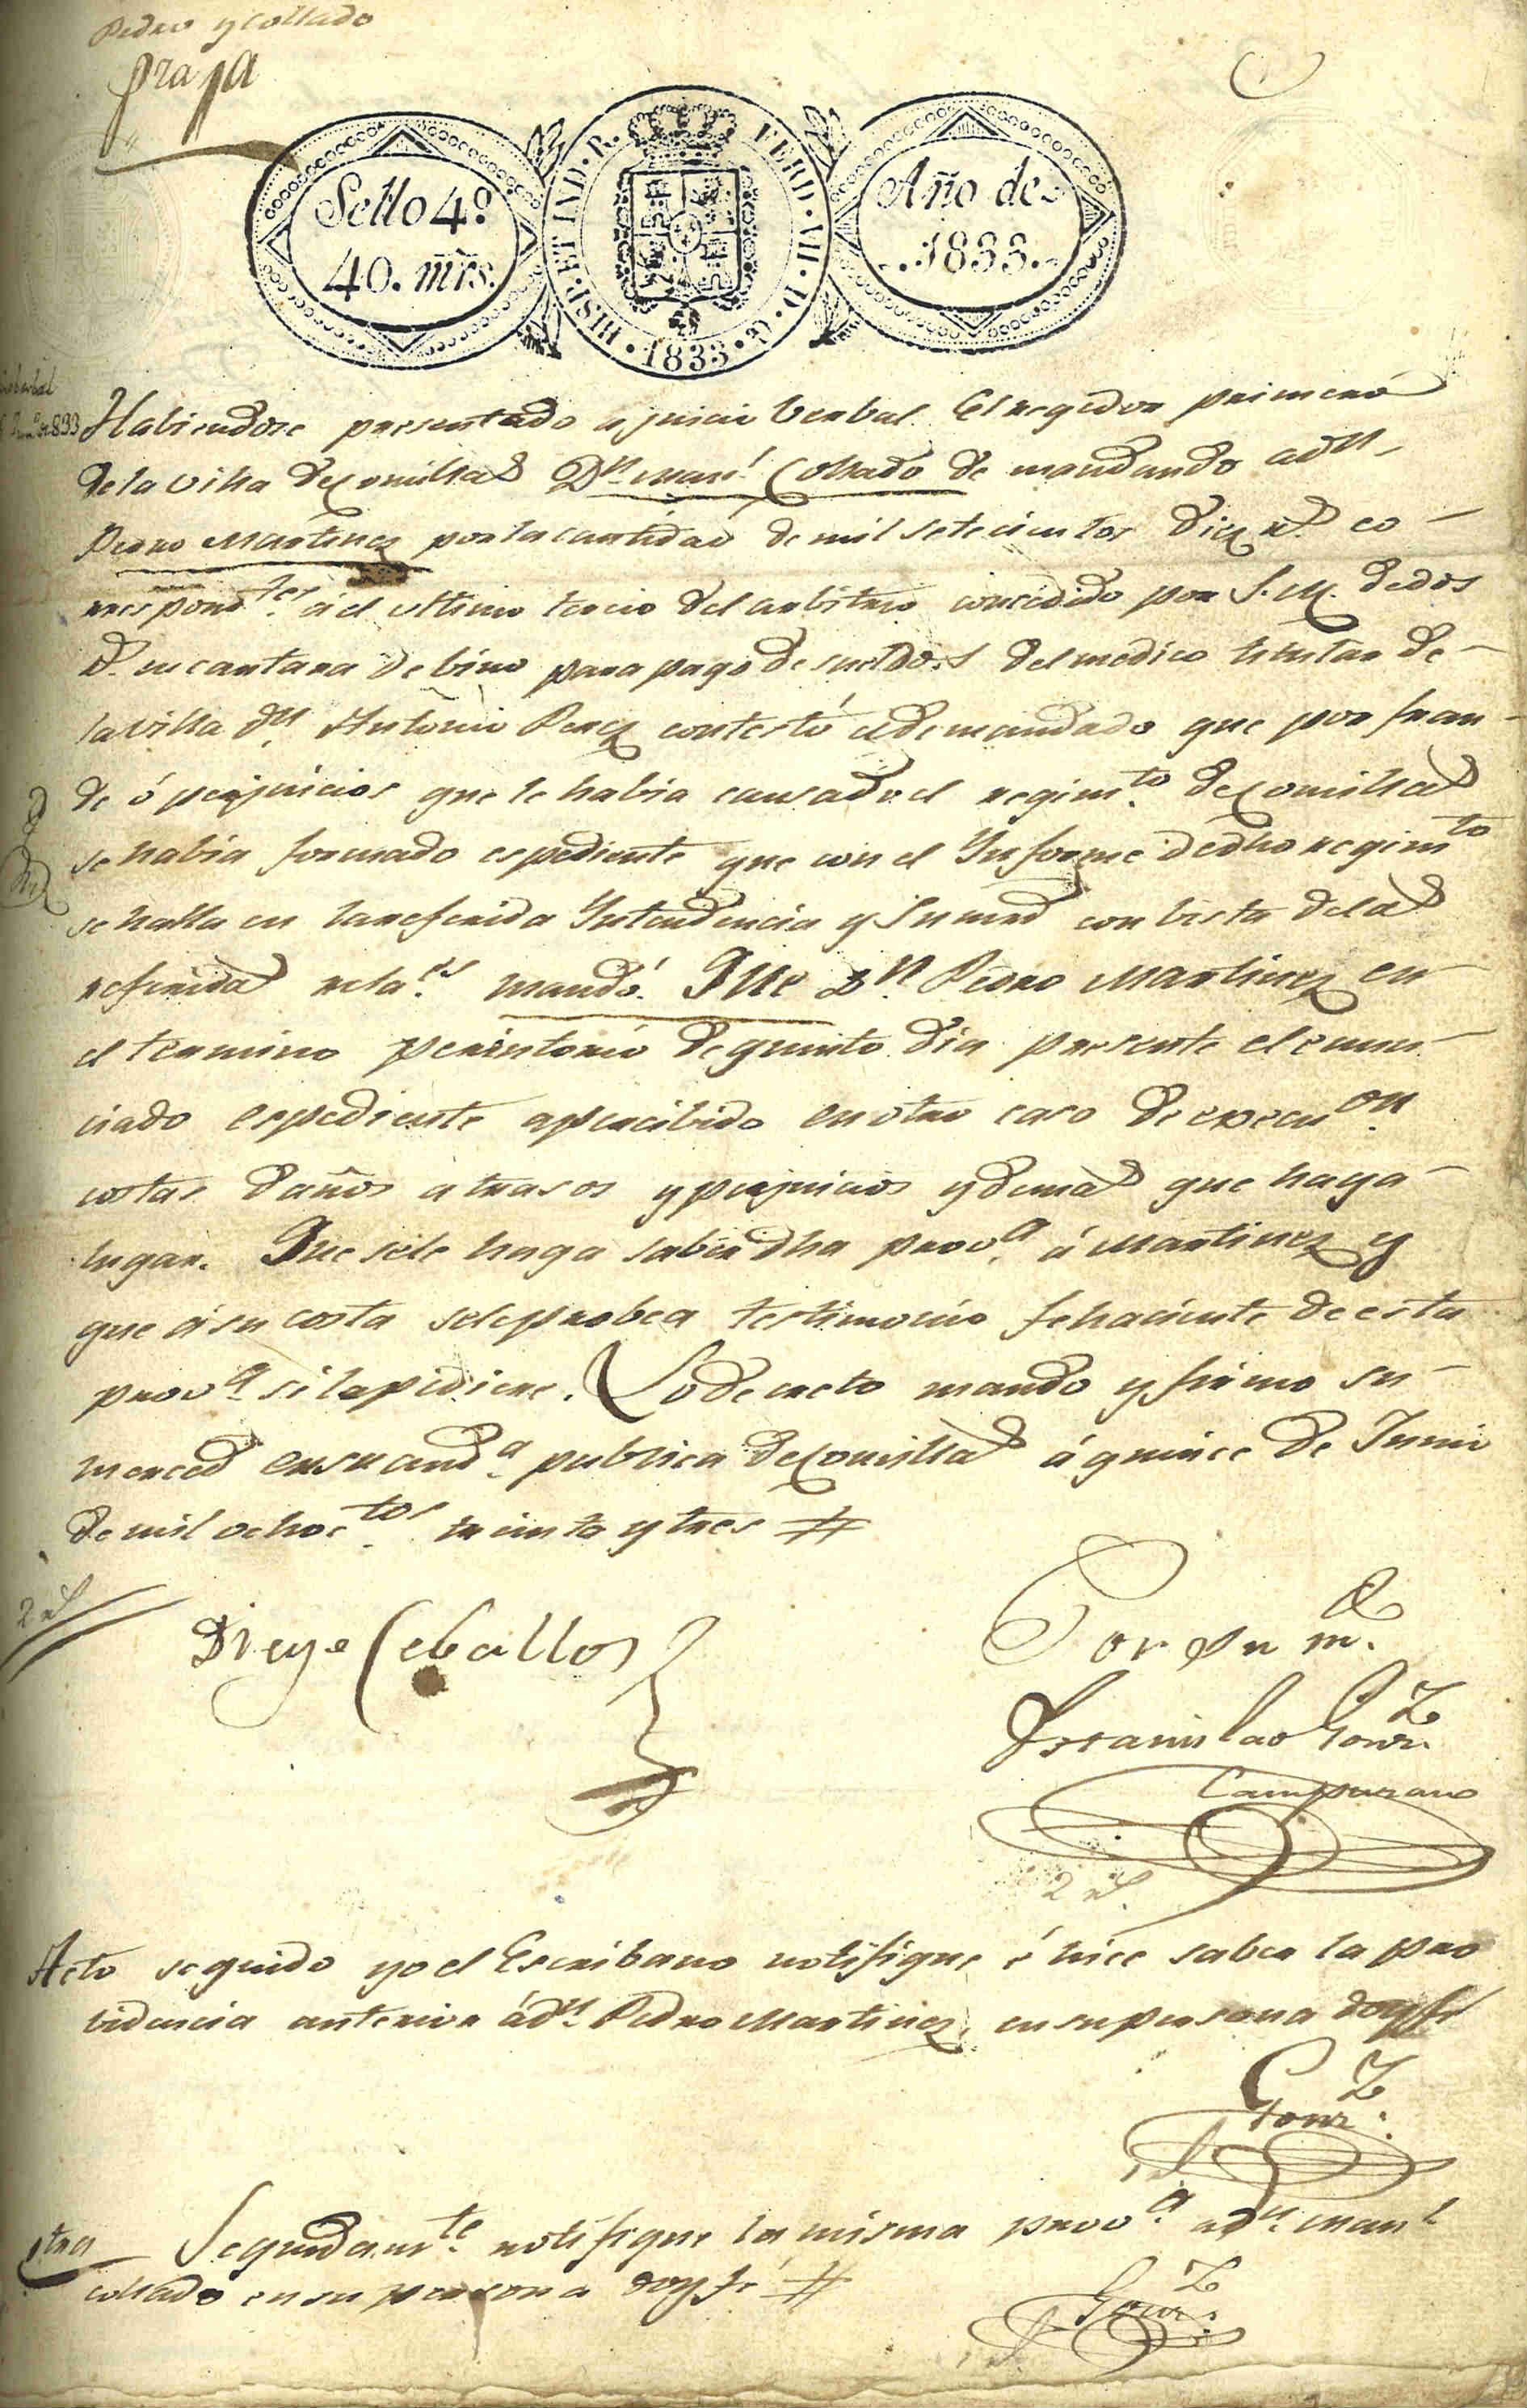 Pedro y Collado
Sello 4º
40. mrs.
HISP. ET IND. R. FERD. VII. D. G. 1833
Año de
1833.
Habiendose presentado a juicio berbal el regidor primero
de la villa de Comillas Dn. Manl. Collado demandando a Dn.
Pedro Martinez por la cantidad de mil setecientos diez rs. co-
rrespondtes. a el ultimo tercio del arbitrio concedido por S. M. de dos
rs. en cantara de bino para pago de sueldos del medico titular de
la villa Dn. Antonio Perez contestó el demandado que por frau-
de ó perjuicios que le habia causado el regimto. de Comillas
se habia formado espediente que con el Informe de dho regimto
se halla en la referida Yntendencia y Su md con bista de las
referidas relas. mandó. Que Dn. Pedro Martinez en
el termino perentorio de quinto dia presente el enun-
ciado espediente apercibido en otro caso de execuon.
costas daños atrasos y perjuicios y demas que haya
lugar. Que se le haga saber dha prova. á Martinez y
que á su costa se le probea testimonio fehaciente de esta
prova. si la pidiere. Lo decreto mando y firmo su
merced en su auda. publica de Comillas á quince de Junio
de mil ochoctos. treinta y tres #
2 rs
Diego Ceballos
Por su m.
Estanislao Gonz.
Campuzano
2 rs.
Acto seguido yo el Escribano notifique é hice saber la pro
bidencia anterior á Dn. Pedro Martinez, en su persona doy fe
Gonz.
Otra Seguidamte. notifique la misma prova. a Dn. Manl
Collado en su persona doy fé #
Gonz.